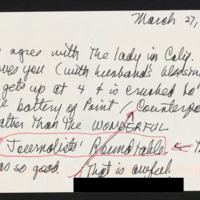 March 27,
agree with The lady in Calif.
ves you (with husbands blessing
gets up at 4 & is
e battery of Point / Counterpo
ather Than The WONDERFUL
Journalists' Roundtable. ← Th
as so good. That is awful